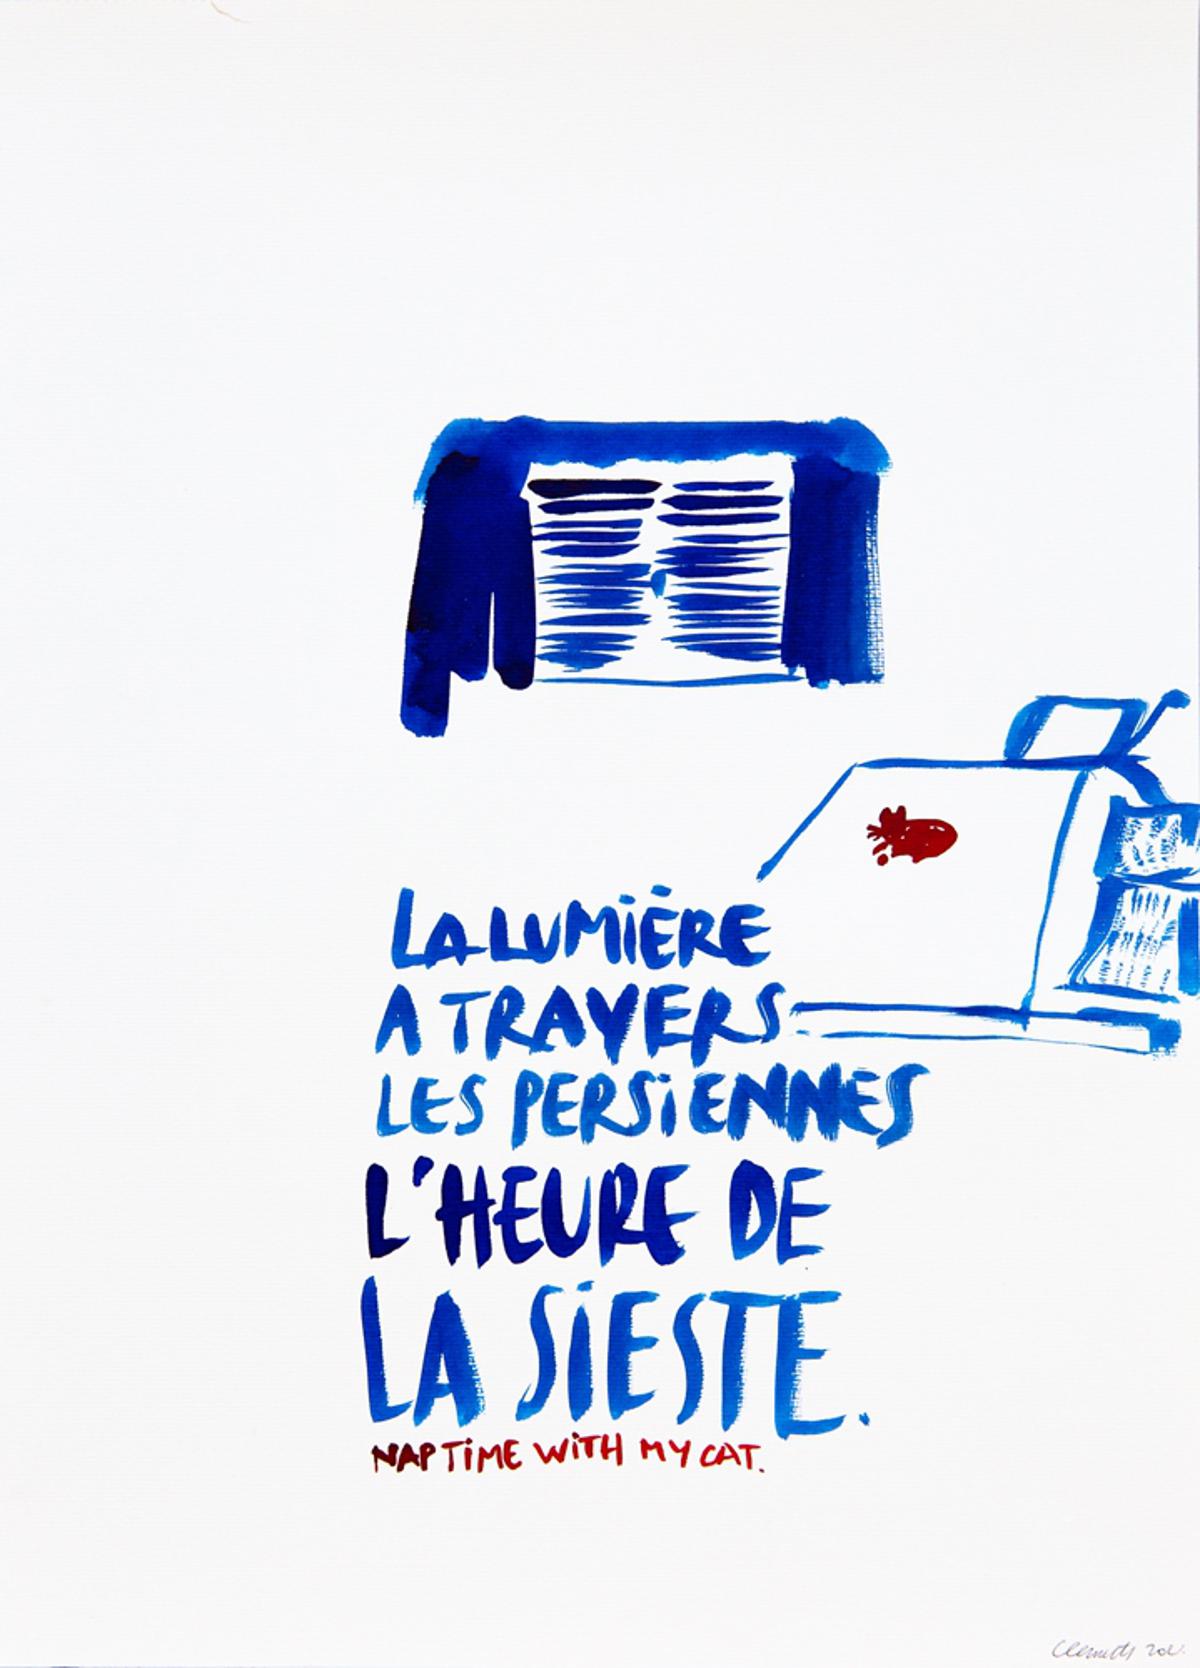 LA LUMiÈRE
A TRAVERS
LES PERSiENNES
L'HEURE DE
LA SiESTE.
NAP TiME WiTH MY CAT.